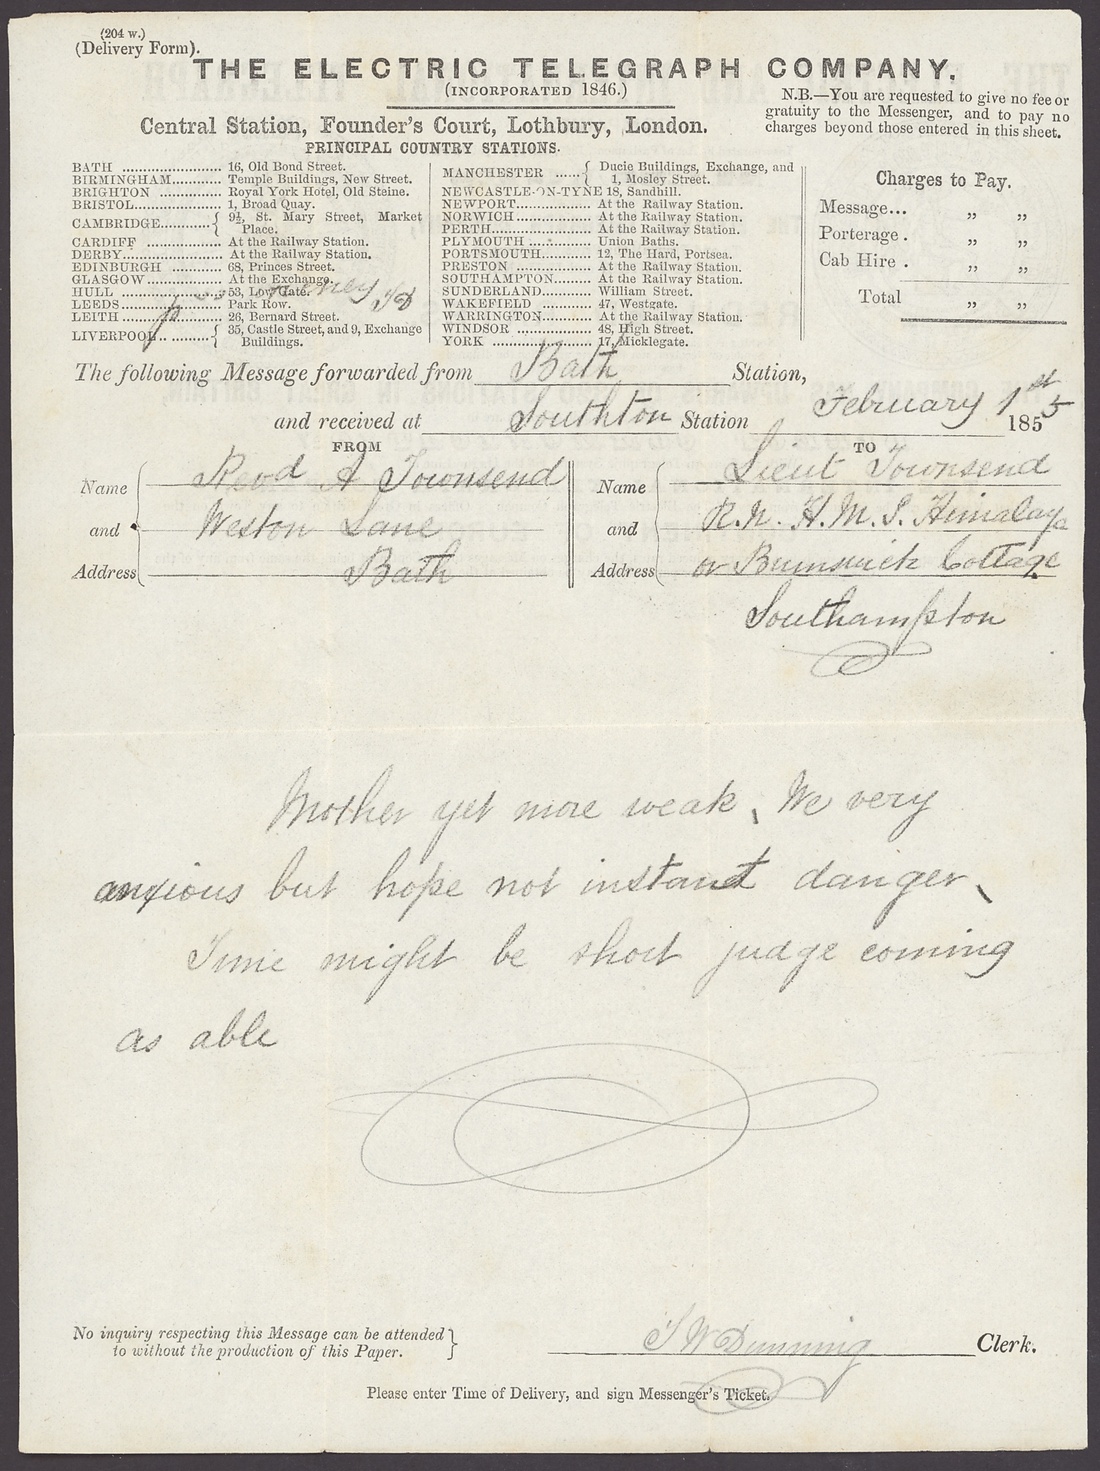 (204 w.)
(Delivery Form).
THE ELECTRIC TELEGRAPH COMPANY.
(INCORPORATED 1846.)
N.B.—You are requested to give no fee or
gratuity to the Messenger, and to pay no
charges beyond those entered in this sheet.
Central Station, Founder's Court, Lothbury, London.
PRINCIPAL COUNTRY STATIONS.
BATH ........................ 16, Old Bond Street.
BIRMINGHAM............ Temple Buildings, New Street.
BRIGHTON .................. Royal York Hotel, Old Steine.
BRISTOL..................... 1, Broad Quay.
CAMBRIDGE............{ 9½, St. Mary Street, Market
Place.
CARDIFF .................. At the Railway Station.
DERBY........................ At the Railway Station.
EDINBURGH ............ 68, Princes Street.
GLASGOW.................. At the Exchange.
HULL ........................ 53, Lowgate.
LEEDS........................ Park Row.
LEITH ........................ 26, Bernard Street.
LIVERPOOL.. .........{ 35, Castle Street, and 9, Exchange
Buildings.
MANCHESTER ......{ Ducie Buildings, Exchange, and
1, Mosley Street.
NEWCASTLE-ON-TYNE 18, Sandhill.
NEWPORT.................. At the Railway Station.
NORWICH.................. At the Railway Station.
PERTH........................ At the Railway Station.
PLYMOUTH ............ Union Baths.
PORTSMOUTH......... 12, The Hard, Portsea.
PRESTON .................. At the Railway Station.
SOUTHAMPTON......... At the Railway Station.
SUNDERLAND............ William Street.
WAKEFIELD ............ 47, Westgate.
WARRINGTON............ At the Railway Station.
WINDSOR .................. 48, High Street.
YORK ........................ 17, Micklegate.
Charges to Pay.
Message... „ „
Porterage . „ „
Cab Hire . „ „
Total „ „
The following Message forwarded from Bath Station,
and received at Southton Station February 1st 1855
FROM
Name Revd A Townsend
and Weston Lane
Address Bath
TO
Name Lieut Townsend
and R.N. H.M.S. Himalaya
Address or Brunswick Cottage
Southampton
Mother yet more weak, We very
anxious but hope not instant danger,
Time might be short judge coming
as able
No inquiry respecting this Message can be attended
to without the production of this Paper.
J W Dunning Clerk.
Please enter Time of Delivery, and sign Messenger's Ticket.